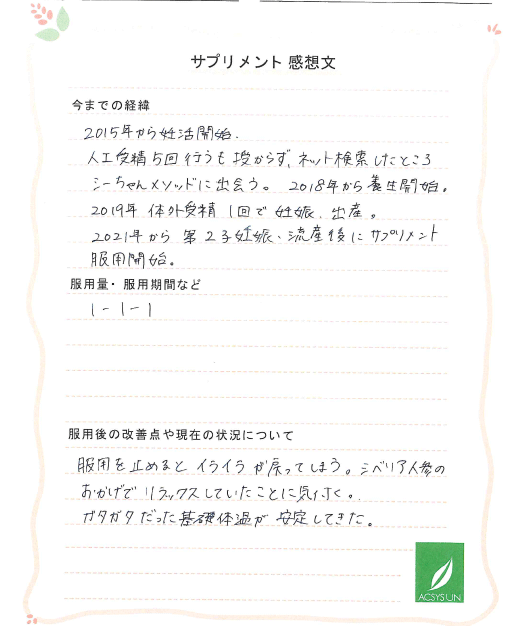 サプリメント 感想文
今までの経緯
2015年から妊活開始.
人工受精5回行うも授からず、ネット検索したところ
シーちゃんメソッドに出会う。 2018年から養生開始。
2019年 体外受精 1回で妊娠、出産。
2021年から 第2子妊娠、流産後にサプリメント
服用開始。
服用量・服用期間など
1-1-1
服用後の改善点や現在の状況について
服用を止めると イライラが戻ってしまう。シベリア人参の
おかげで リラックスしていたことに気付く。
ガタガタだった基礎体温が 安定してきた。
ACSYSUN